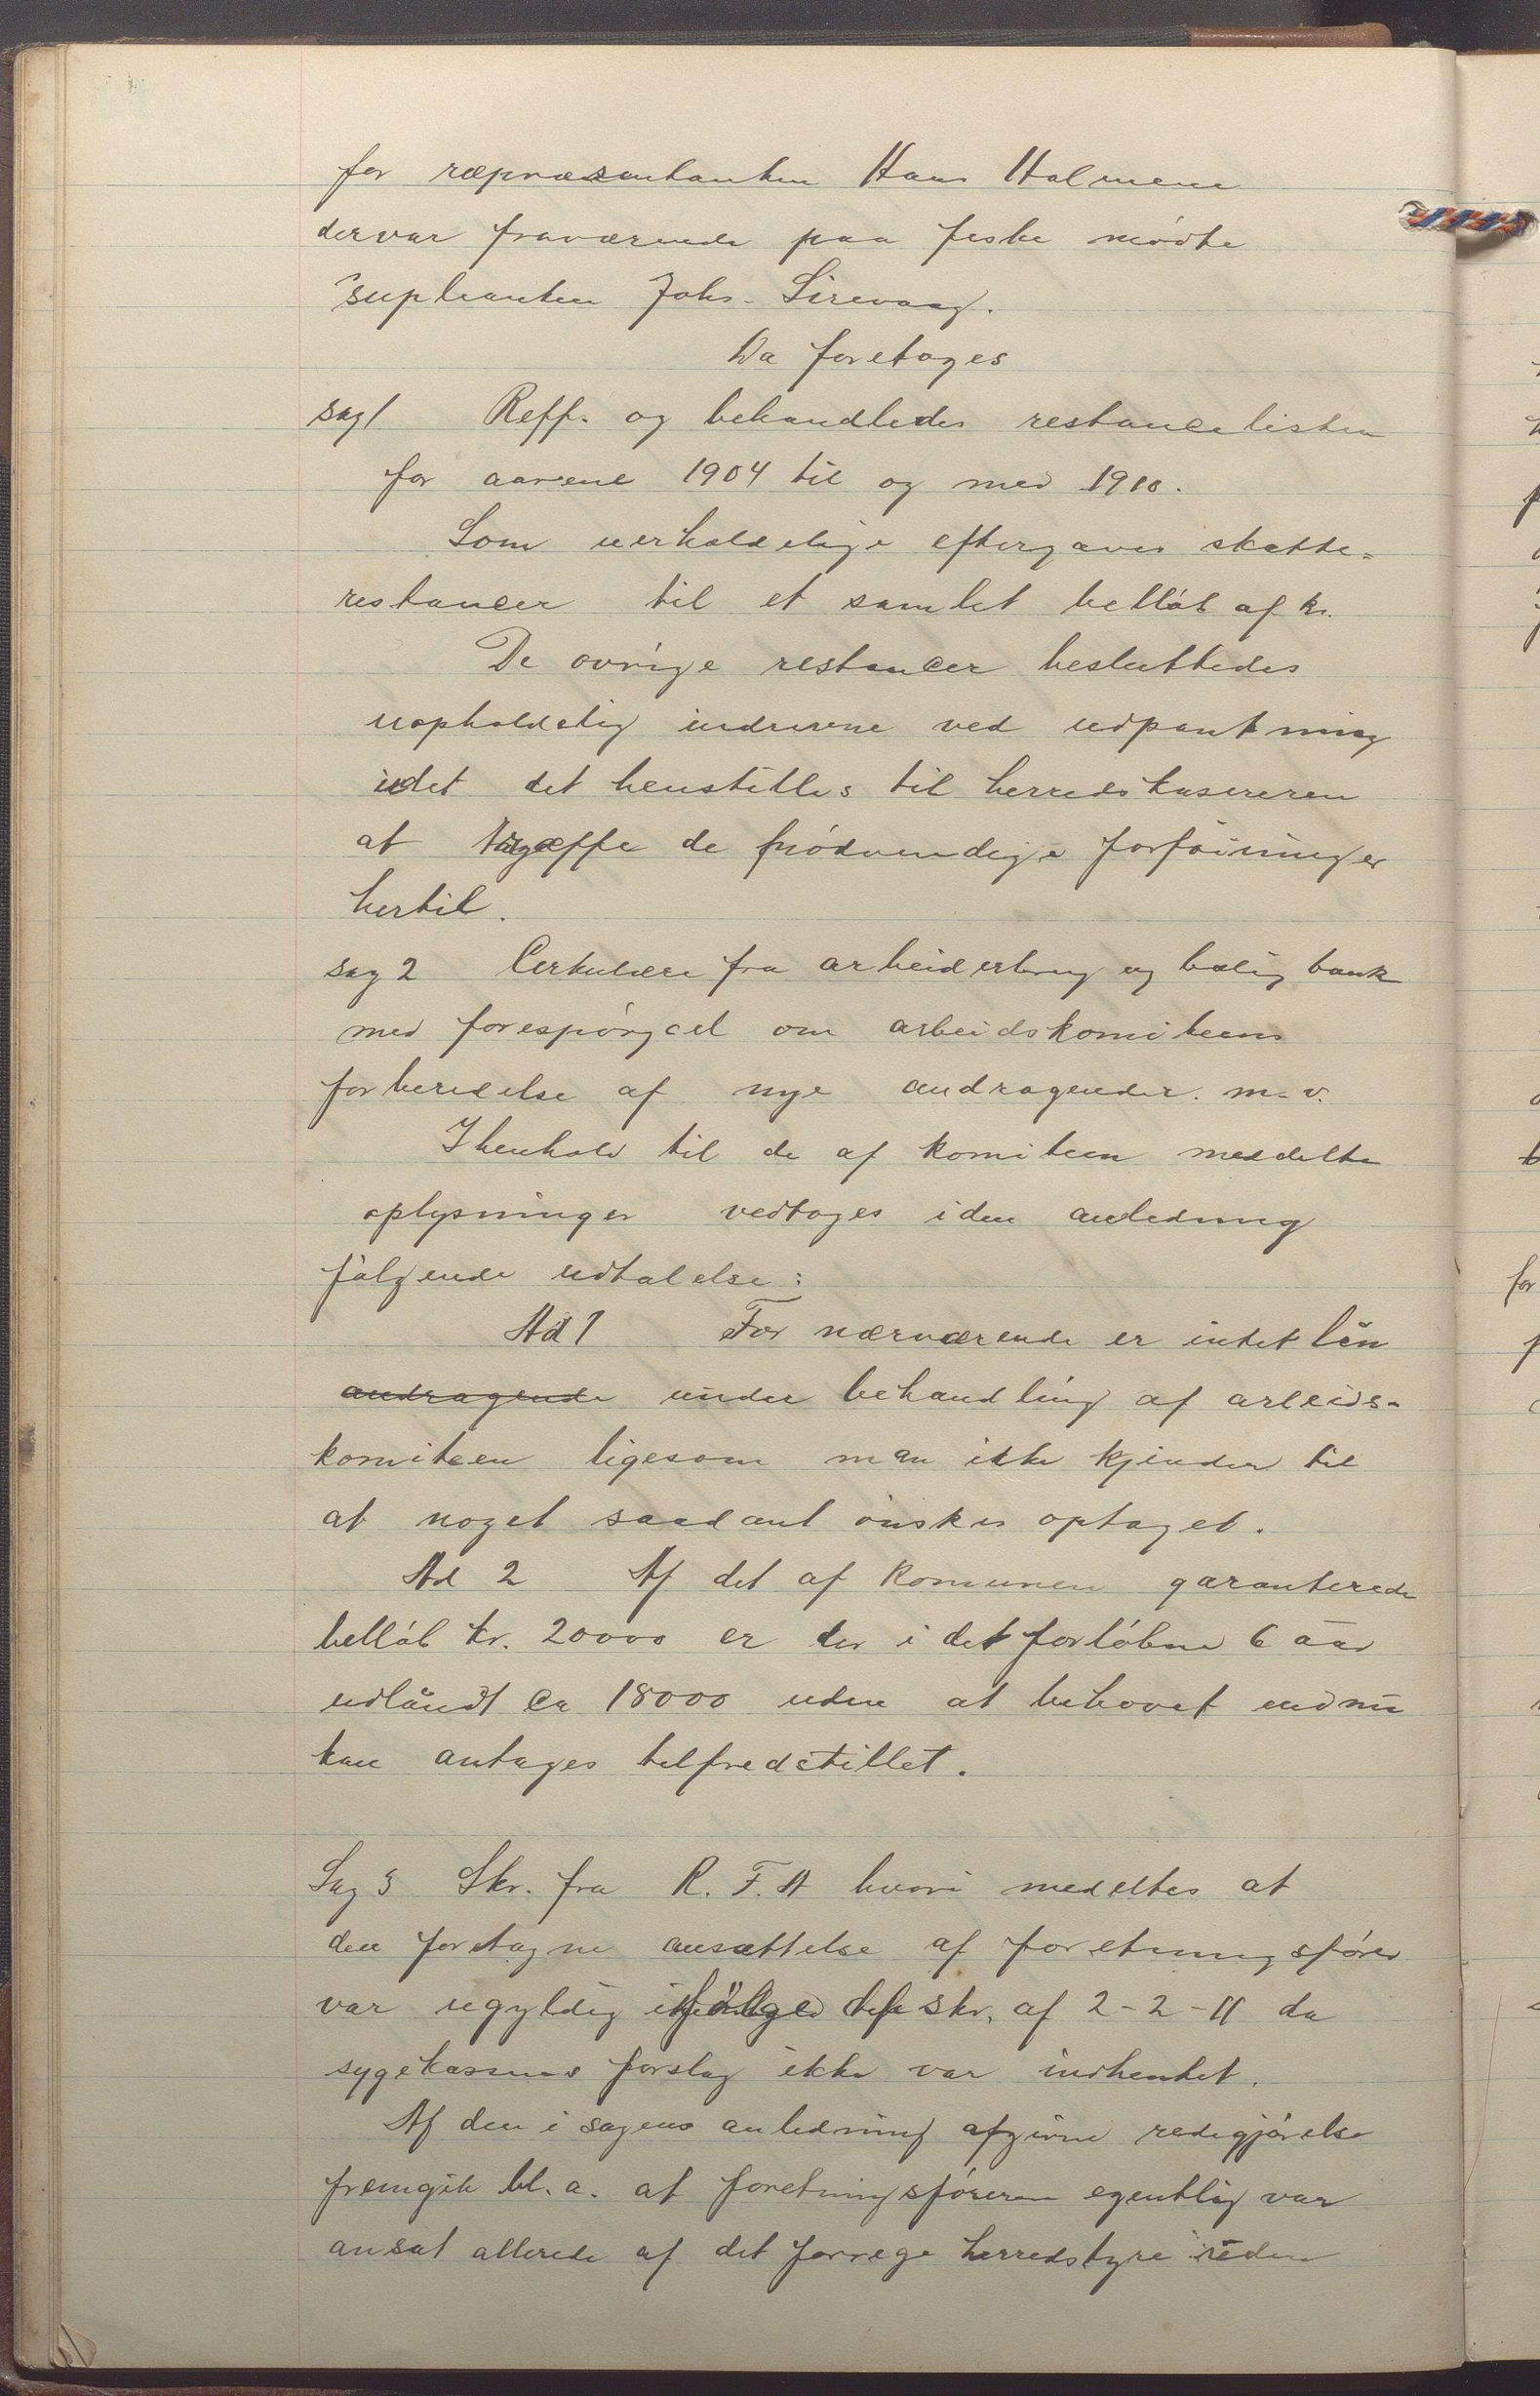 for repræsentanten Hans Holmene
dervar fraværende paa feske mødte
supleanten Johs. Sirevaag.
Da foretoges
sag 1 Reff. og behandledes restancelisten
for aarene 1904 til og med 1910.
Som uerholdelige eftergaves skatte=
restancer til et samlet belløb af kr.
De øvrige restancer besluttedes
uopholdelig inddrevne ved udpantning
idet det henstilles til herredskasereren
at træffe de nødvendige forføininger
hertil.
sag 2 Cerkulære fra arbeiderbrug og bolig bank
med forespørgsel om arbeidskomiteens
forberedelse af nye andragender m.v.
I henhold til de af komiteen meddelte
oplysninger vedtoges iden anledning
følgende udtalelse:
Ad 1 For nærværende er intet lån
andragende under behandling af arbeids-
komiteen ligesom man ikke kjender til
at noget saadant ønskes optaget.
Ad 2 Af det af Komunen garanterede
belløb kr. 20000 er der i det forløbne 6 aar
udlånt ca 18000 uden at behovet endnu
kan antages telfredstillet.
Sag 3 Skr. fra R. F. A hvori medeltes at
den foretagne ansættelse af foretningsfører
var ugyldig ifølge skr. af 2-2-11 da
sygekassens forslag ikke var indhentet.
Af den i sagens anledning afgivne redegjørelse
fremgik bl. a. at foretningsføreren egentlig var
ansat allerede af det forrege herredstyre uden